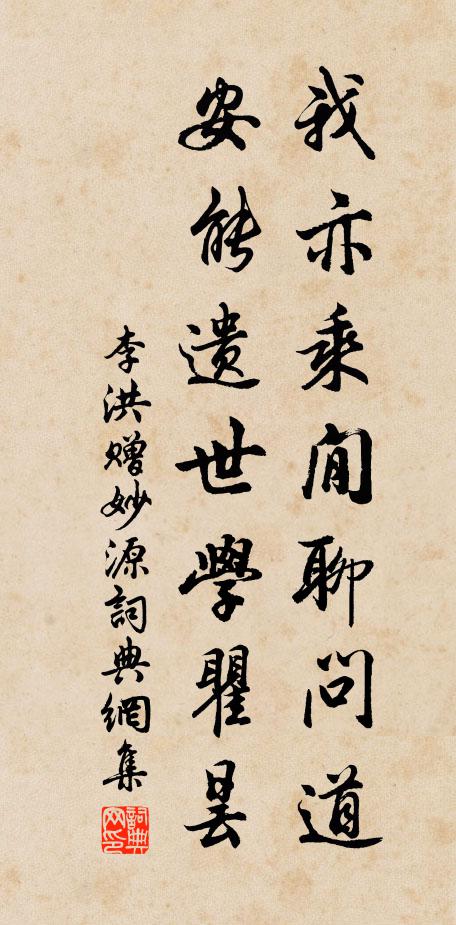 我亦乘閒聊問道
安能遺世學瞿曇
李洪贈妙源詞典網集
詞典網印